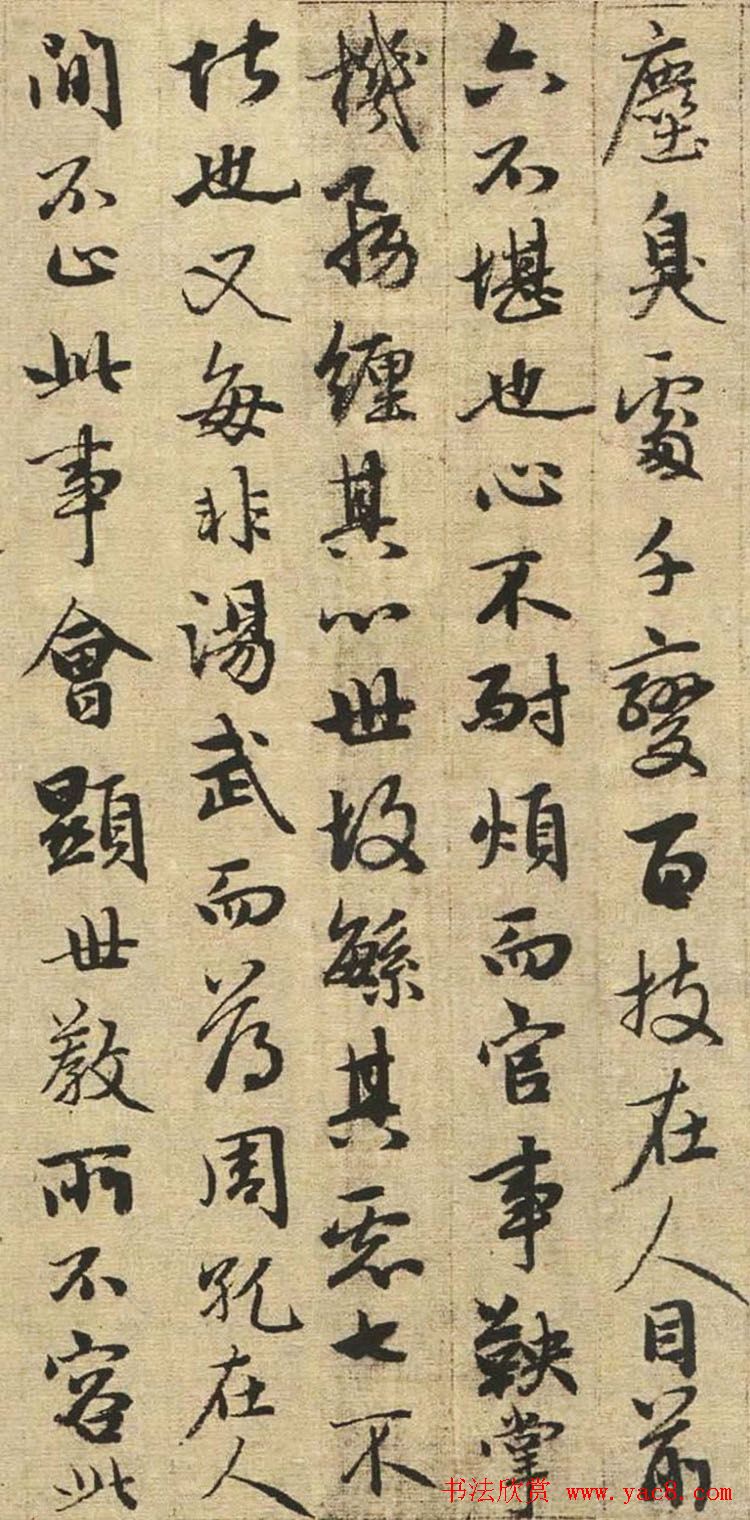 塵臭處千變百技在人目前
六不堪也心不耐煩而官事鞅掌
機務纏其心世故繁其慮七不
堪也又每非湯武而薄周孔在人
間不止此事會顯世教所不容此
书法欣赏 www.yac8.com